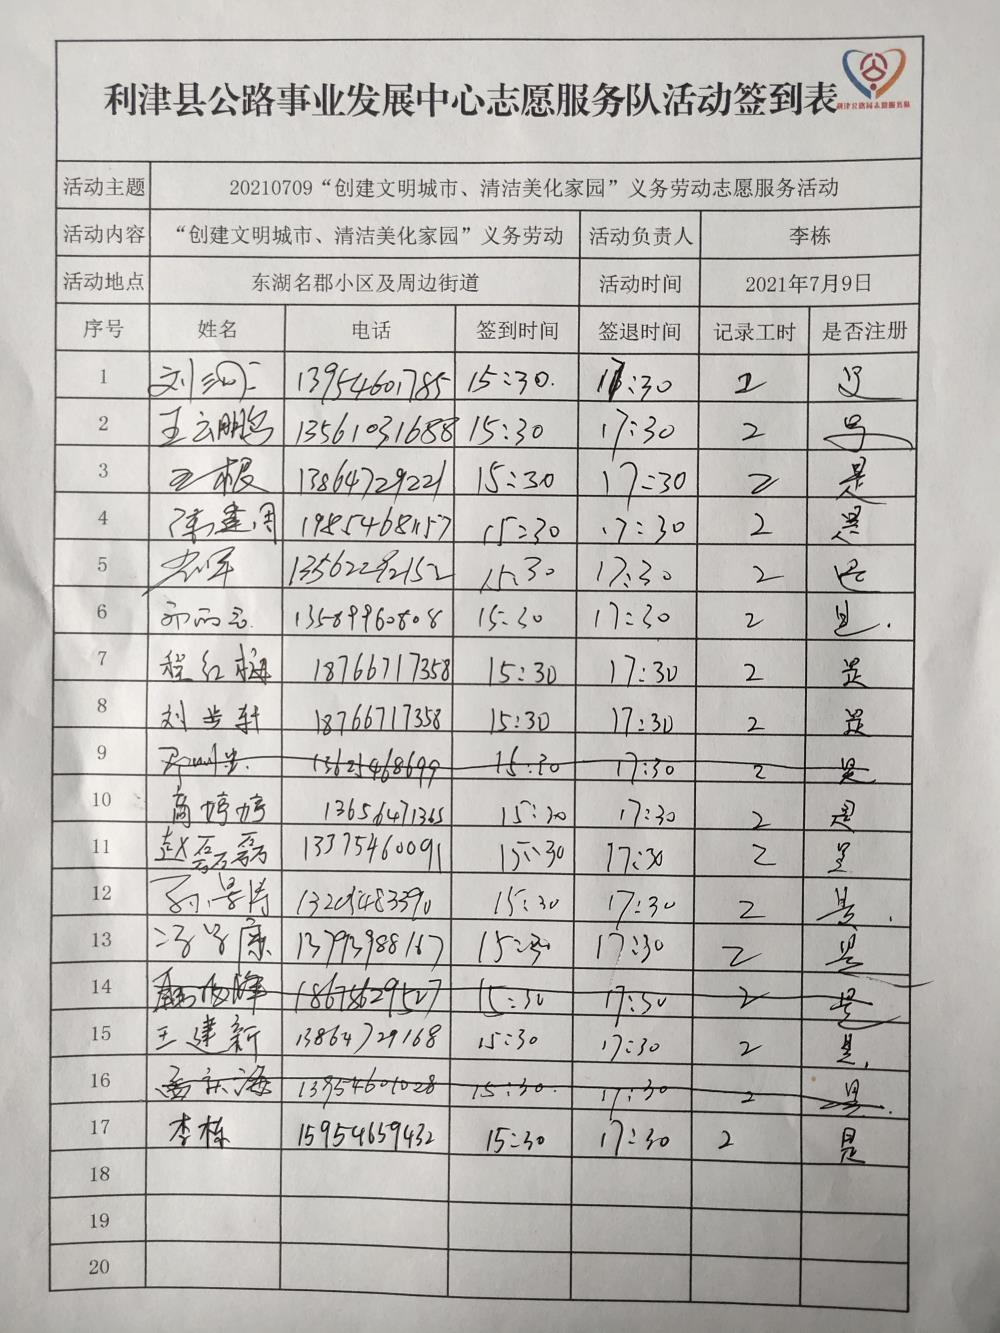 利津县公路事业发展中心志愿服务队活动签到表
利津公路局志愿服务队
活动主题 20210709“创建文明城市、清洁美化家园”义务劳动志愿服务活动
活动内容 “创建文明城市、清洁美化家园”义务劳动 活动负责人 李栋
活动地点 东湖名郡小区及周边街道 活动时间 2021年7月9日
序号 姓名 电话 签到时间 签退时间 记录工时 是否注册
1 刘 13954601785 15:30. 17:30 2 是
2 王云鹏 13561031688 15:30 17:30 2 是
3 王根 13864729221 15:30 17:30 2 是
4 陈建周 15:30 17:30 2 是
5 13562292152 15:30 17:30 2 是
6 13589960808 15:30 17:30 2 是.
7 程红梅 18766717358 15:30 17:30 2 是
8 刘步轩 18766717358 15:30 17:30 2 是
9 13625468699 15:30 17:30 2 是
10 商婷婷 13656471365 15:30 17:30 2 是
11 赵磊磊 13375460091 15:30 17:30 2 是
12 孙景涛 15:30 17:30 2 是.
13 冯 康 13793988167 15:30 17:30 2 是
14 18678629527 15:30 17:30 2 是
15 王建新 13864729168 15:30 17:30 2 是.
16 海 13954601028 15:30. 17:30 2 是.
17 李栋 15954659432 15:30 17:30 2 是
18
19
20